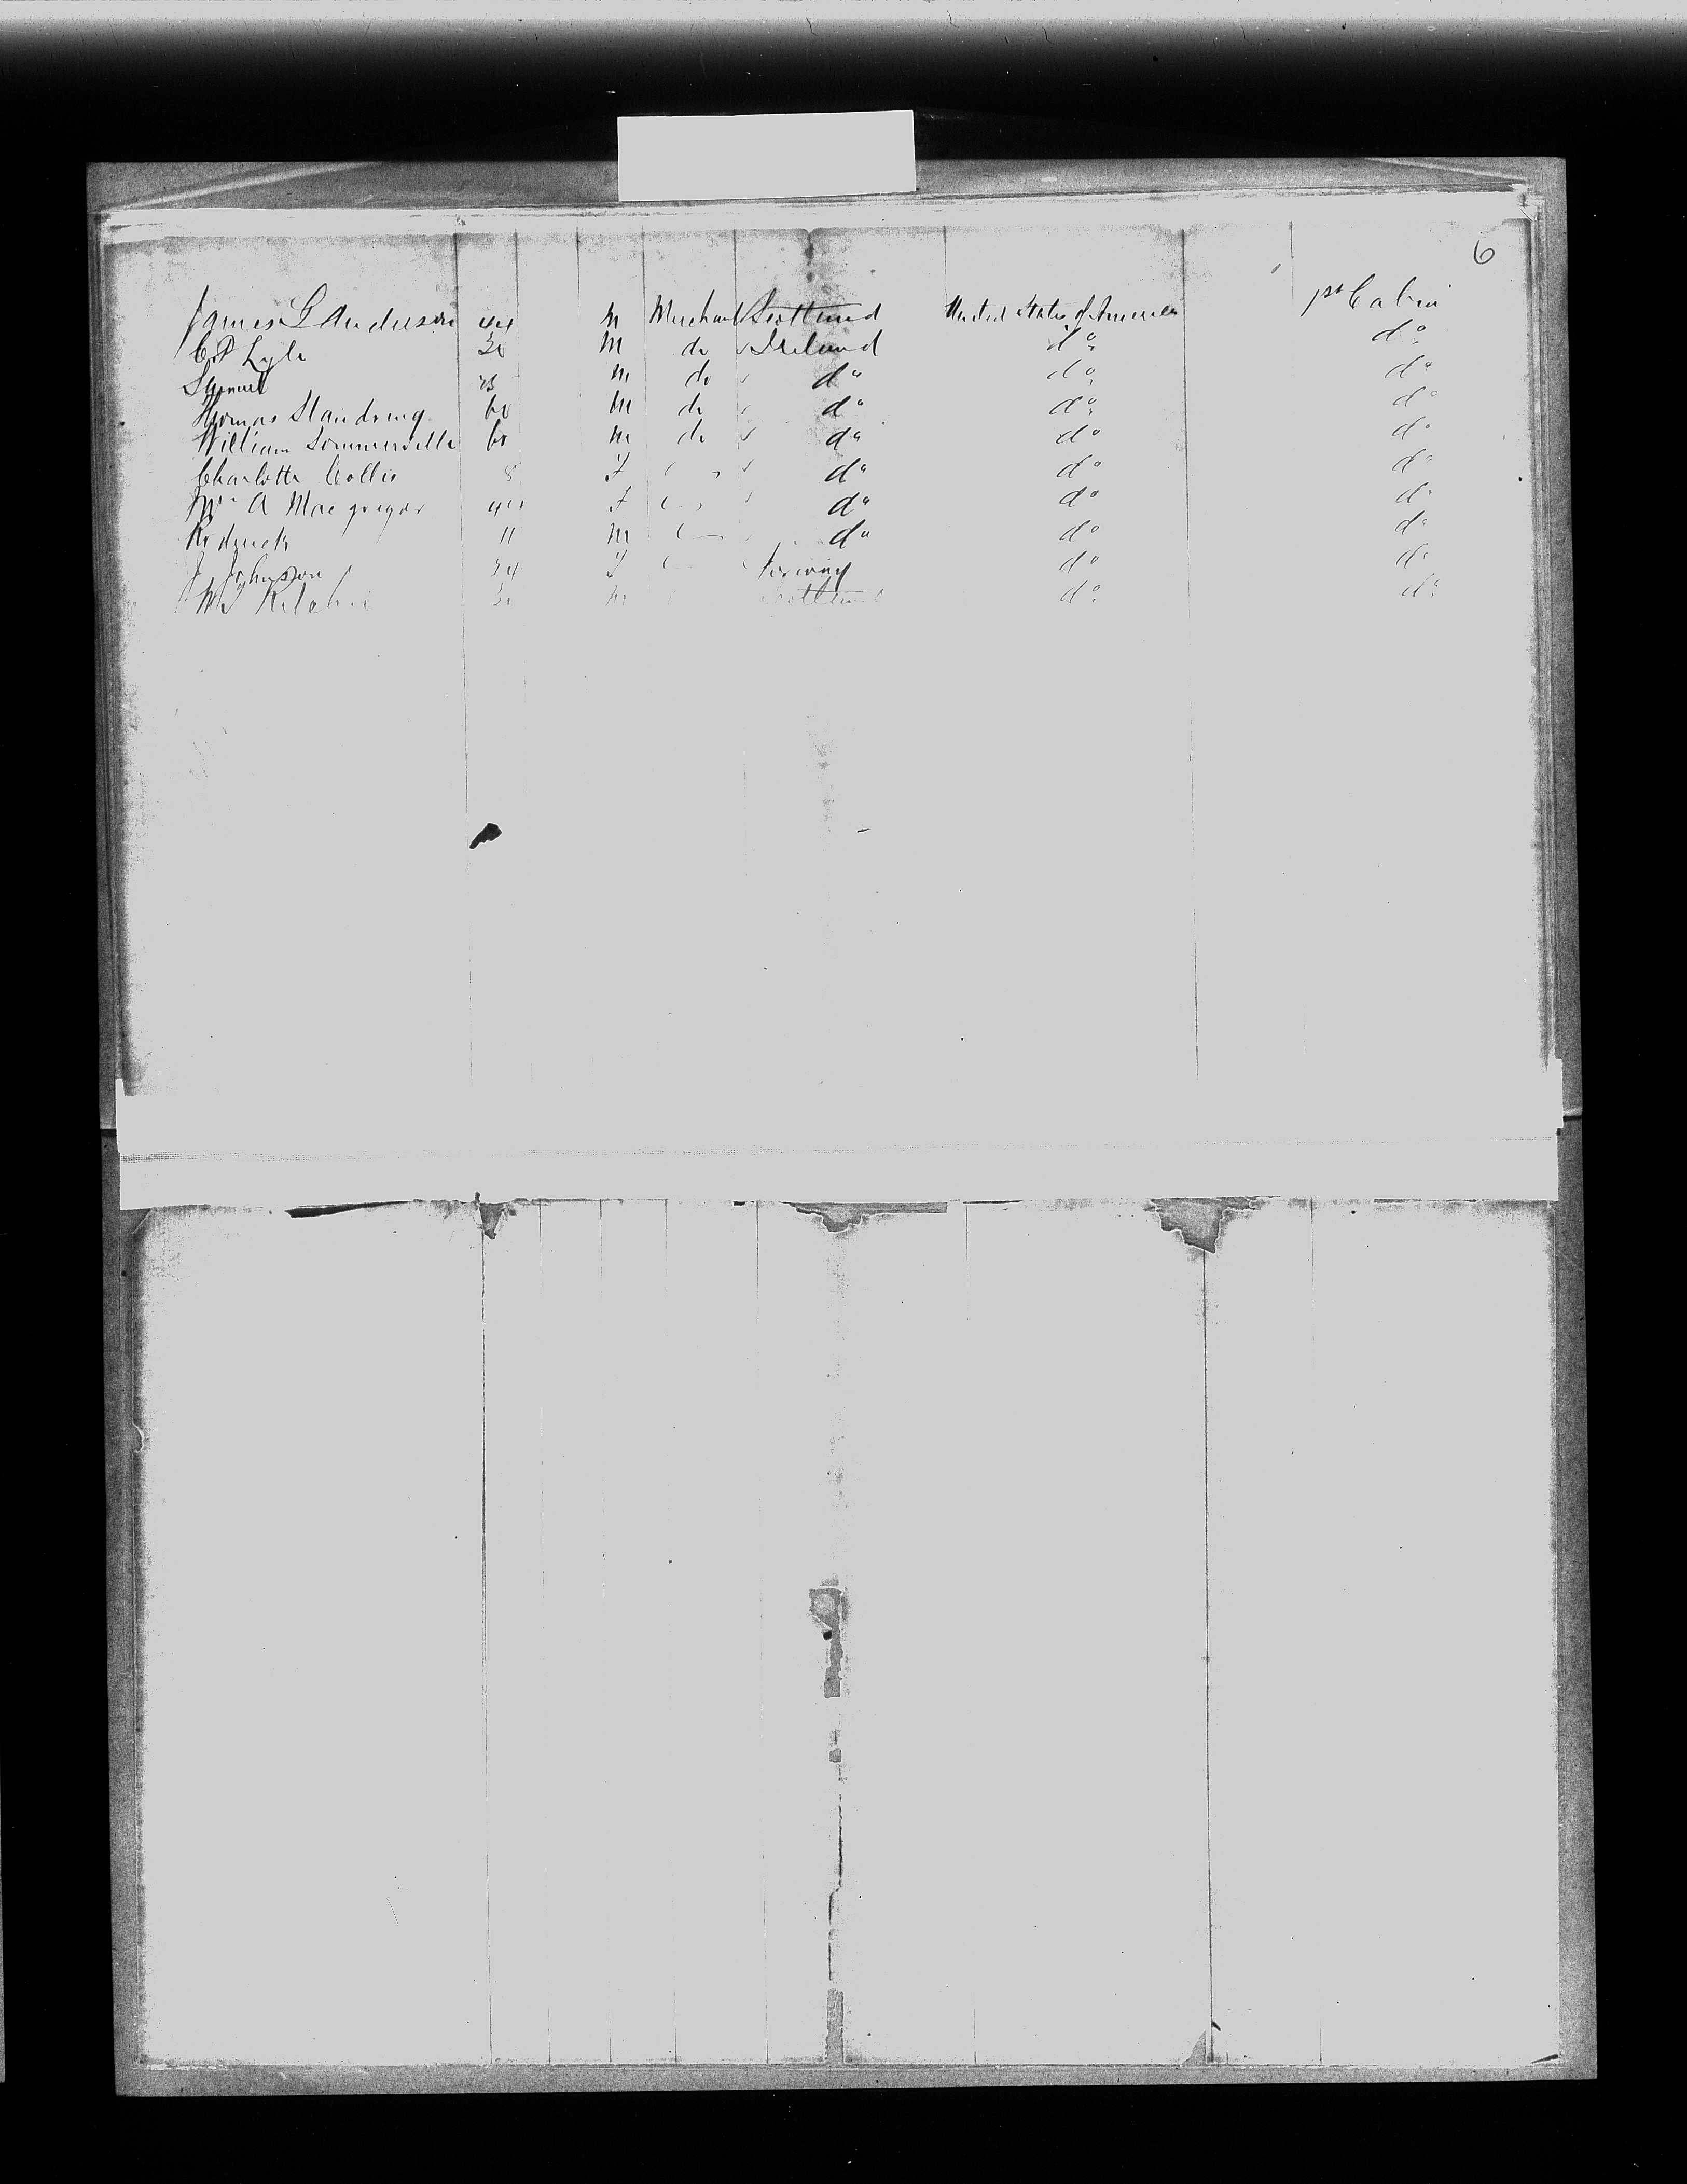 6
James L Anderson 44 M Merchant Scotland United States of America 1st Cabin
C P Lyle 30 M do Ireland do do
Samuel M do do do do
Thomas Standring 60 M do do do do
William Sommerville 60 M do do do do
Charlotte Collis 8 F do do do
Mrs A Macgregor 40 F do do do
Rodrick 11 M do do do
J Johnson 24 F Norway do do
Ritchie 30 M Scotland do do